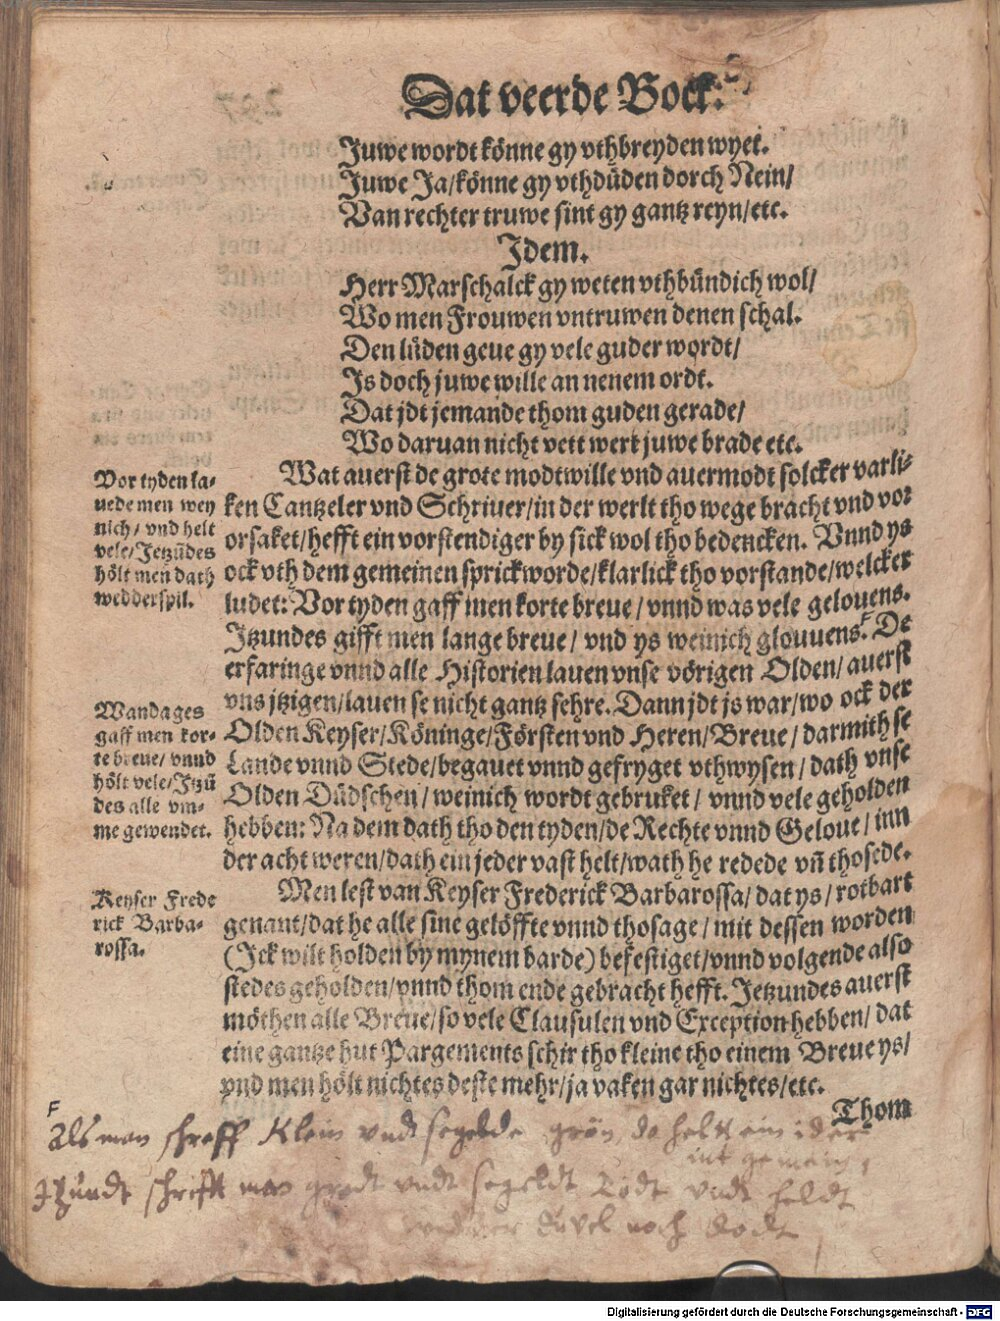 Dat veerde Bock.
Juwe wordt könne gy vthbreyden wyet.
Juwe Ja/könne gy vthdüden dorch Nein/
Van rechter truwe sint gy gantz reyn/etc.
Idem.
Herr Marschalck gy weten vthbündich wol/
Wo men Frouwen vntruwen denen schal.
Den lüden geue gy vele guder wordt/
Is doch juwe wille an nenem ordt.
Dat jdt jemande thom guden gerade/
Wo daruan nicht vett wert juwe brade etc.
Vor tyden la-
uede men wey
nich/ vnd helt
vele/Jetzūdes
hölt men dath
wedderspil.
Wat auerst de grote modtwille vnd auermodt solcker varli-
ken Cantzeler vnd Schriuer/in der werlt tho wege bracht vnd vor
orsaket/hefft ein vorstendiger by sick wol tho bedencken. Vnnd ys
ock vth dem gemeinen sprickworde/klarlick tho vorstande/welcker
ludet: Vor tyden gaff men korte breue/ vnnd was vele gelouens.
Itzundes gifft men lange breue/ vnd ys weinich glouuens. F De
erfaringe vnnd alle Historien lauen vnse vörigen Olden/ auerst
vns jtzigen/lauen se nicht gantz sehre. Dann jdt is war/wo ock der
Wandages
gaff men kor-
te breue/ vnnd
hölt vele/Itzū
des alle vm-
me gewendet.
Olden Keyser/Köninge/Försten vnd Heren/Breue/ darmith se
Lande vnnd Stede/begauet vnnd gefryget vthwysen/ dath vnse
Olden Düdschen/ weinich wordt gebruket/ vnnd vele geholden
hebben: Na dem dath tho den tyden/de Rechte vnnd Geloue/ inn
der acht weren/dath ein jeder vast helt/wath he redede vn̄ thosede.
Keyser Frede
rick Barba-
rossa.
Men lest van Keyser Frederick Barbarossa/ dat ys/ rotbart
genant/dat he alle sine gelöffte vnnd thosage/ mit dessen worden
(Ick wilt holden by mynem barde) befestiget/vnnd volgende also
stedes geholden/vnnd thom ende gebracht hefft. Jetzundes auerst
möthen alle Breue/so vele Clausulen vnd Exception hebben/ dat
eine gantze hut Pargements schir tho kleine tho einem Breue ys/
vnd men hölt nichtes deste mehr/ja vaken gar nichtes/etc.
Thom
F
Als man schreff Klein vndt segelde grön do helt ein ider
int gemein,
Itzundt schrifft man grodt vndt segeldt Rodt vndt heldt
der düvel noch dodt
Digitalisierung gefördert durch die Deutsche Forschungsgemeinschaft - DFG